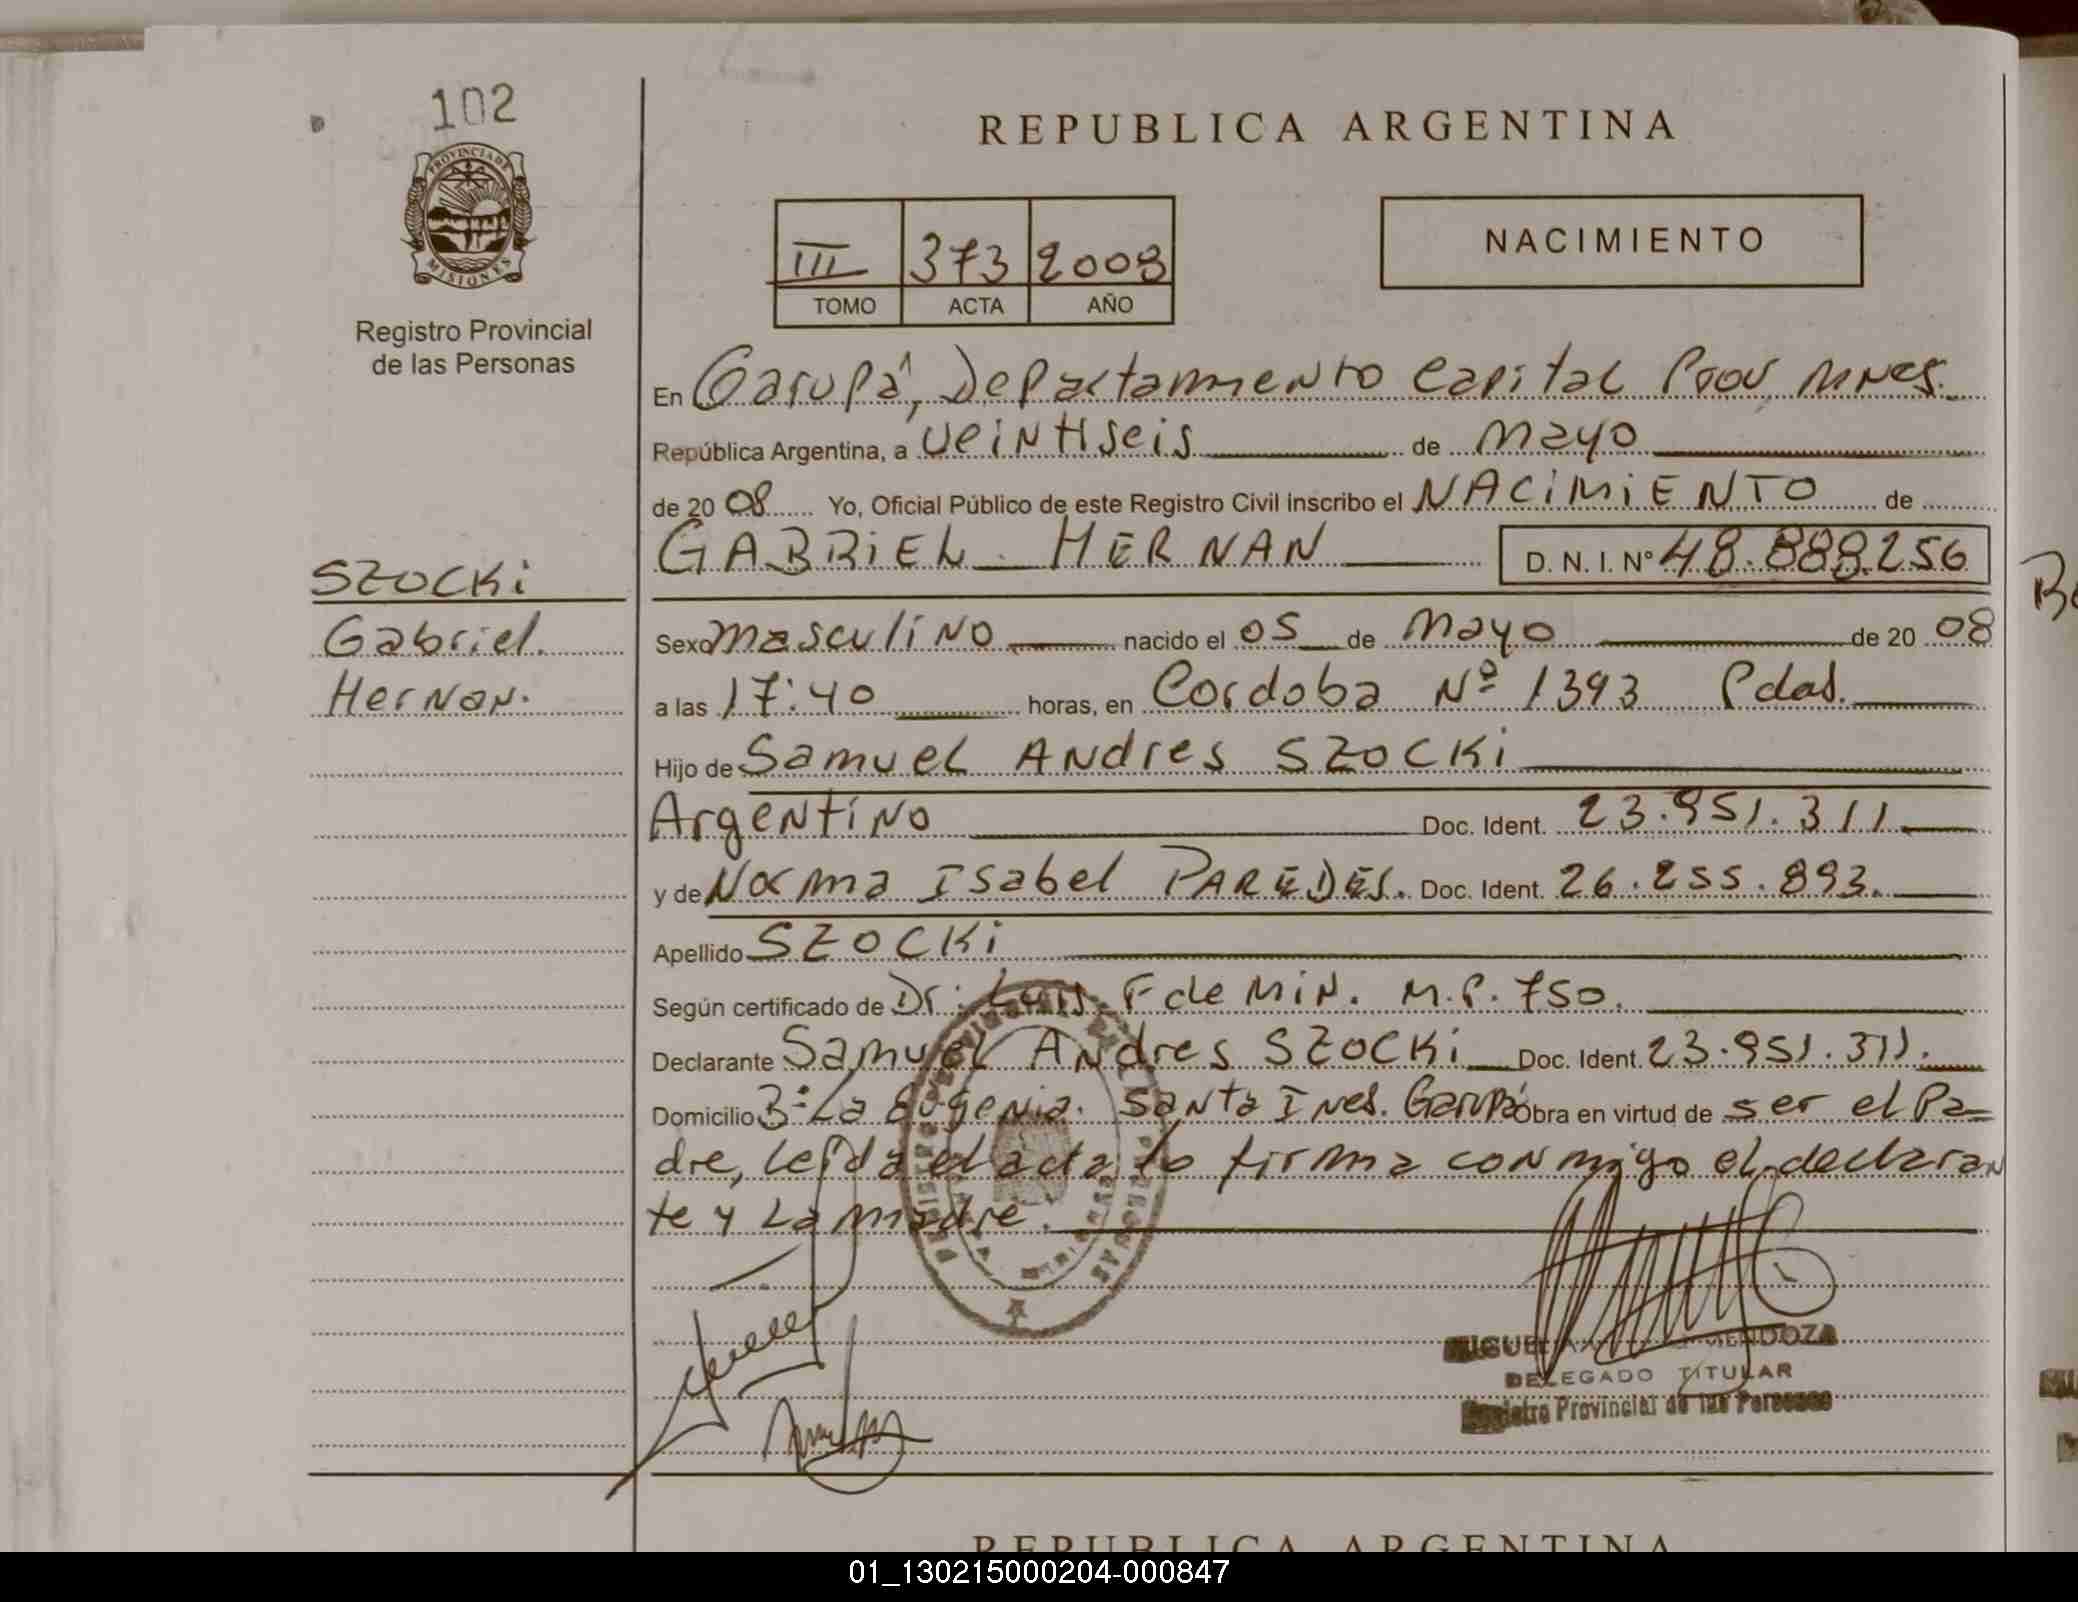 102
PROVINCIA DE
MISIONES
Registro Provincial
de las Personas
REPUBLICA ARGENTINA
III 373 2008
TOMO ACTA AÑO
NACIMIENTO
En Garupá, Departamento Capital Prov. Mnes.
República Argentina, a veintiseis de mayo
de 20 08 Yo, Oficial Público de este Registro Civil inscribo el NACIMIENTO de
GABRIEL HERNAN D. N. I. Nº 48.888.256
SZOCKI
Gabriel.
Hernan.
Sexo masculino nacido el 05 de mayo de 20 08
a las 17:40 horas, en Cordoba Nº 1393 Pdas.
Hijo de Samuel Andres SZOCKI
Argentino Doc. Ident. 23.951.311
y de Norma Isabel PAREDES. Doc. Ident. 26.255.893.
Apellido SZOCKI
Según certificado de Dr: Luis F de Min. M.P. 750.
Declarante Samuel Andres SZOCKI Doc. Ident. 23.951.311.
Domicilio Bº La Eugenia. Santa Ines. Garupá Obra en virtud de ser el Pa-
dre, leída el acta lo firma conmigo el declaran
te y La madre.
MIGUEL MENDOZA
DELEGADO TITULAR
Registro Provincial de las Personas
REPUBLICA ARGENTINA
01_130215000204-000847